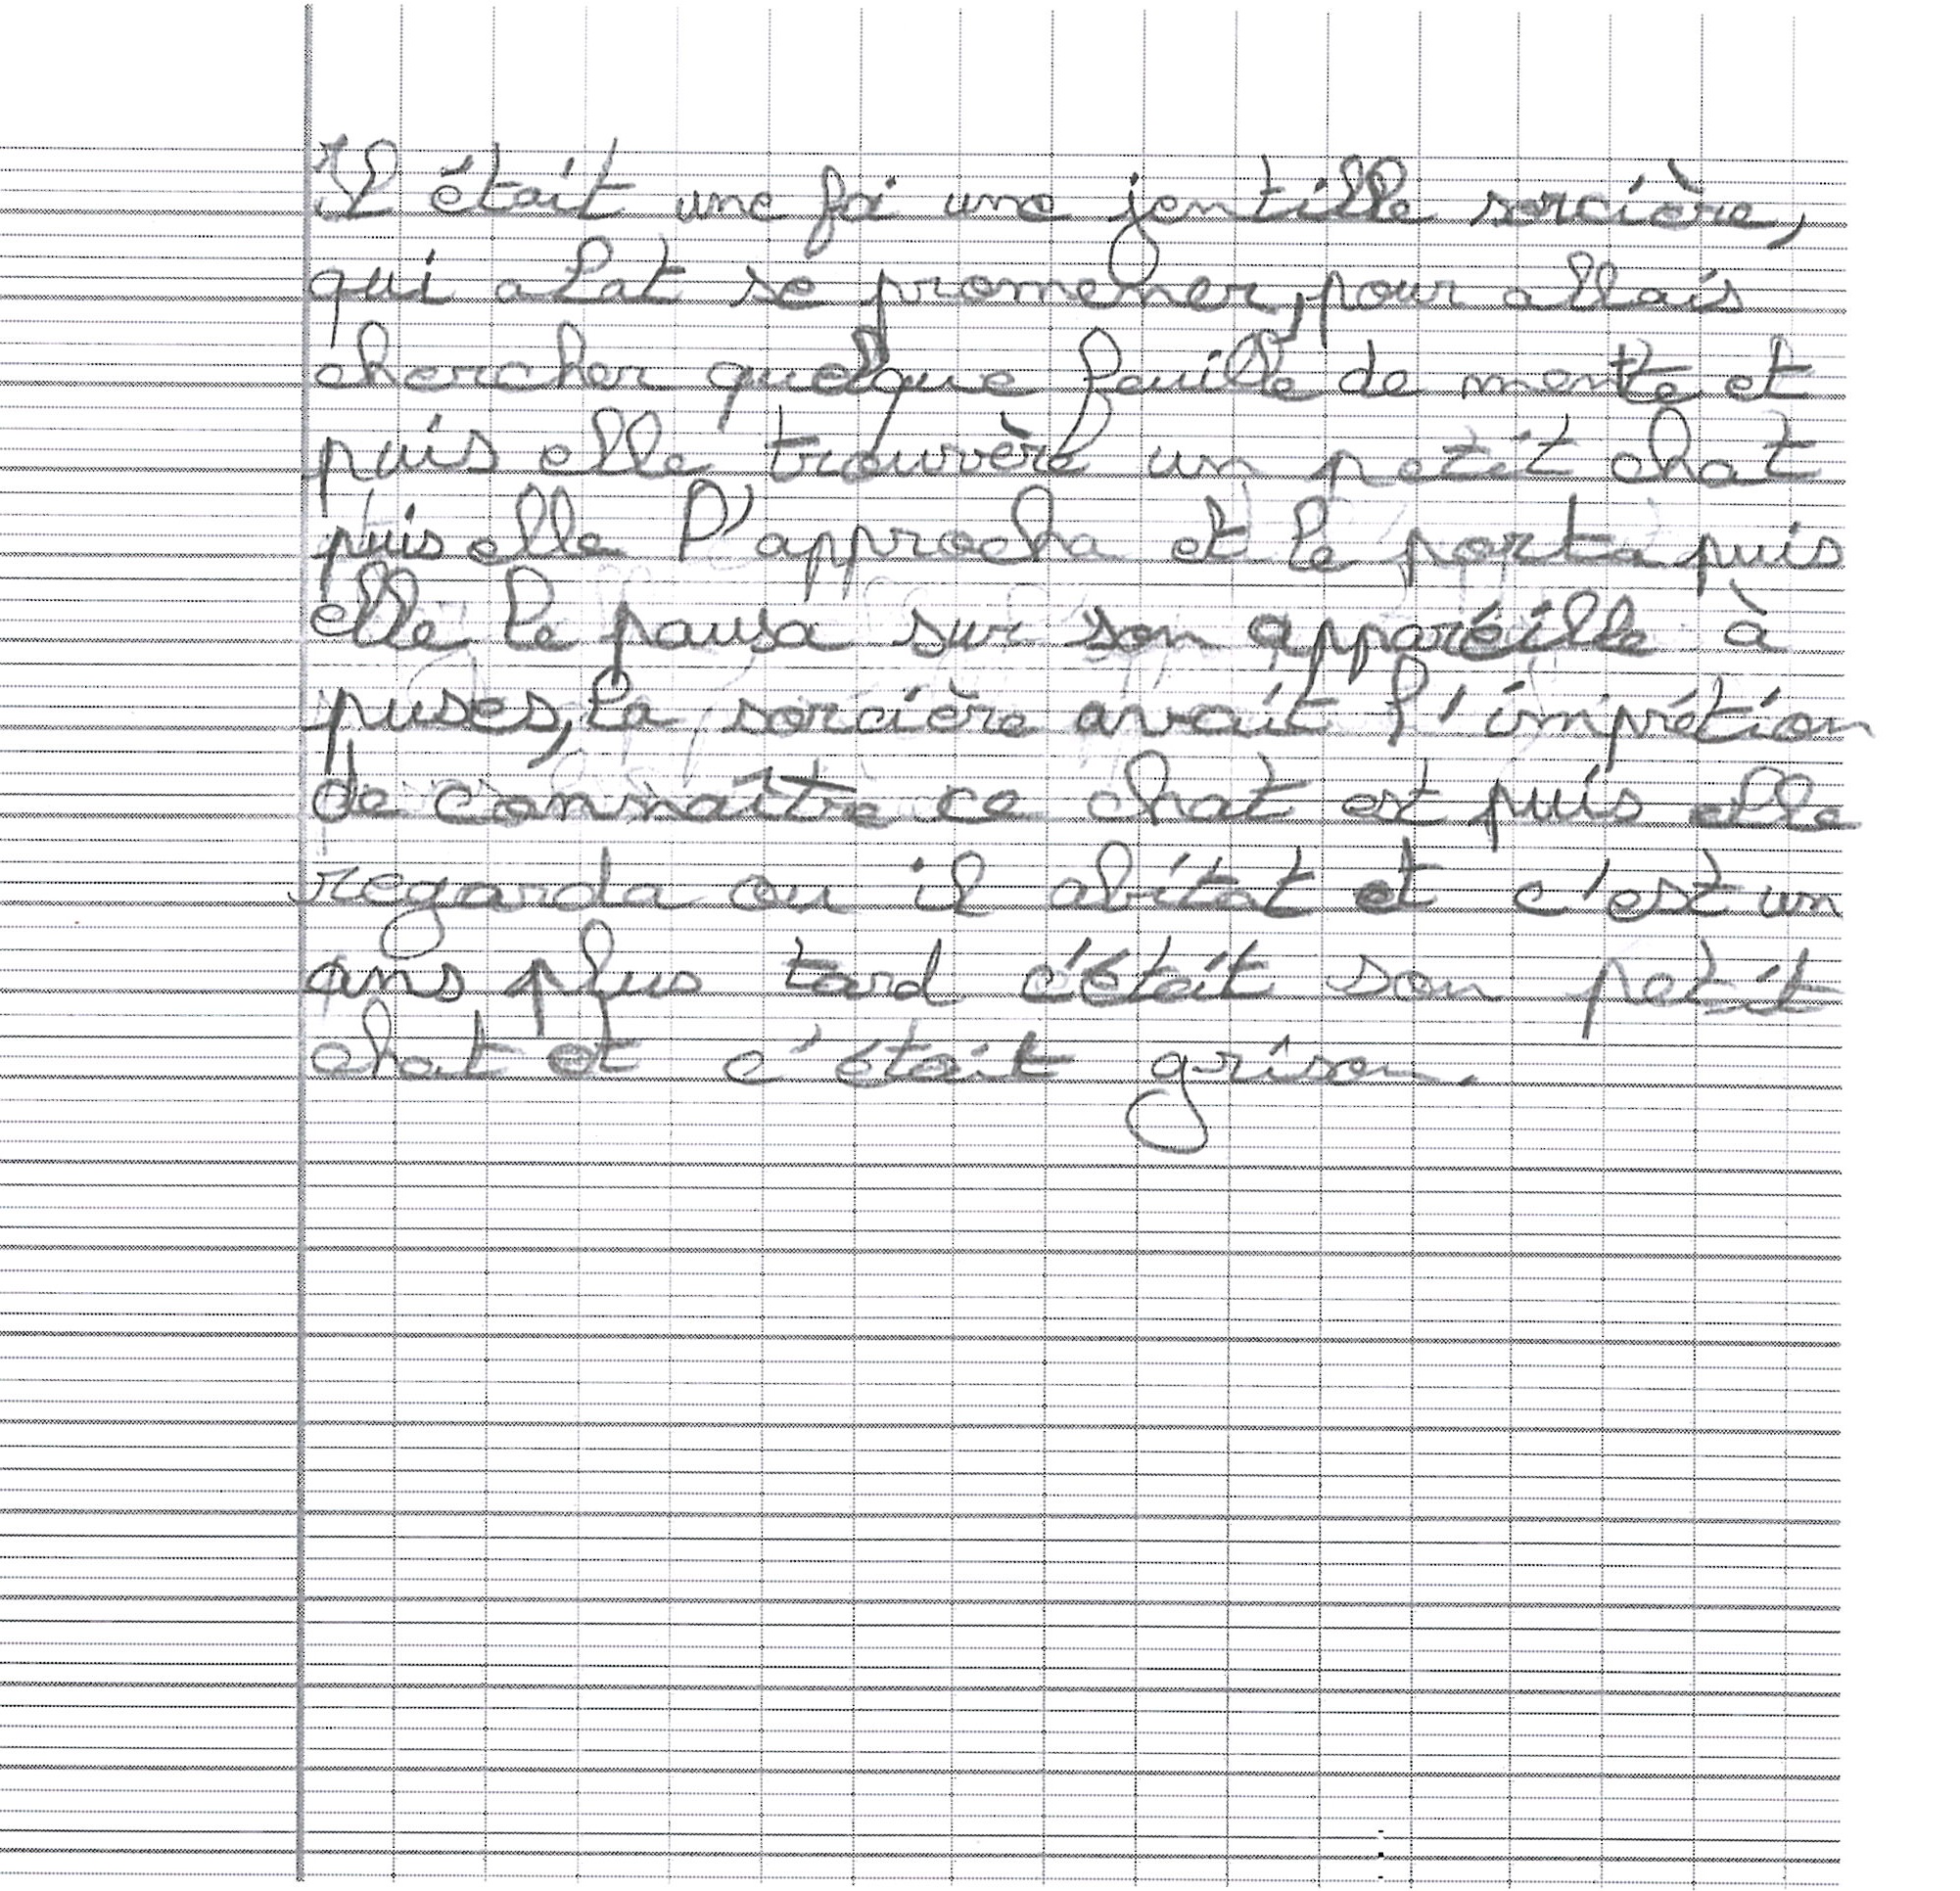 Il était une foi une jentille sorcière,
qui alat se promener, pour allais
chercher quelque feuille de mente et
puis elle trouvère un petit chat
puis elle l'approcha et le porta puis
elle le pausa sur son apparéille à
puses, la sorcière avait l'imprétion
de connaître ce chat est puis elle
regarda ou il abitat et c'est un
ans plus tard c'était son petit
chat et c'était grison.